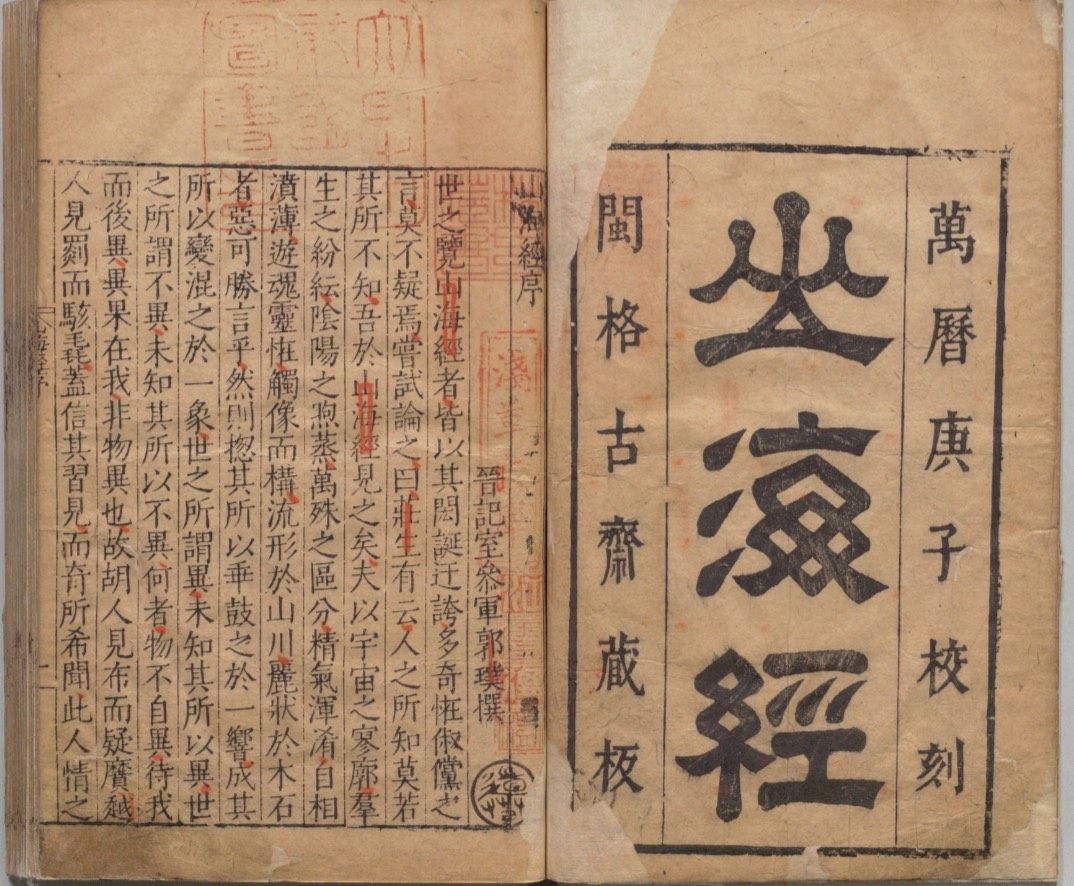 萬曆庚子校刻
山海經
閩格古齋藏板
山海經序
晉記室參軍郭璞撰
世之覽山海經者皆以其閎誕迂誇多奇怪俶儻之
言莫不疑焉嘗試論之曰莊生有云人之所知莫若
其所不知吾於山海經見之矣夫以宇宙之寥廓羣
生之紛紜陰陽之煦蒸萬殊之區分精氣渾淆自相
濆薄遊魂靈怪觸像而構流形於山川麗狀於木石
者惡可勝言乎然則揔其所以乖鼓之於一響成其
所以變混之於一象世之所謂異未知其所以異世
之所謂不異未知其所以不異何者物不自異待我
而後異異果在我非物異也故胡人見布而疑黂越
人見罽而駭毳蓋信其習見而奇所希聞此人情之
圖書